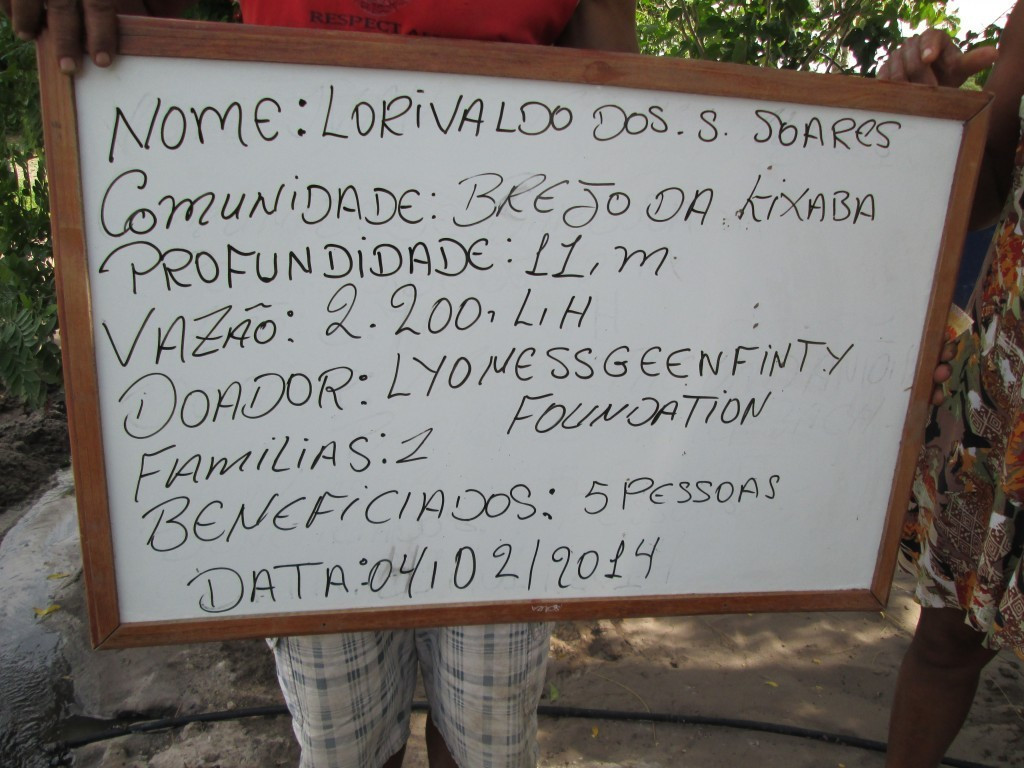 RESPECT
NOME: LORIVALDO DOS. S. SOARES
COMUNIDADE: BREJO DA KIXABA
PROFUNDIDADE: 11, m.
VAZÃO: 2.200, L, H
DOADOR: LYONESSGEENFINTY
FOUNDATION
FAMILIAS: 1
BENEFICIADOS: 5 PESSOAS
DATA: 04/02/2014